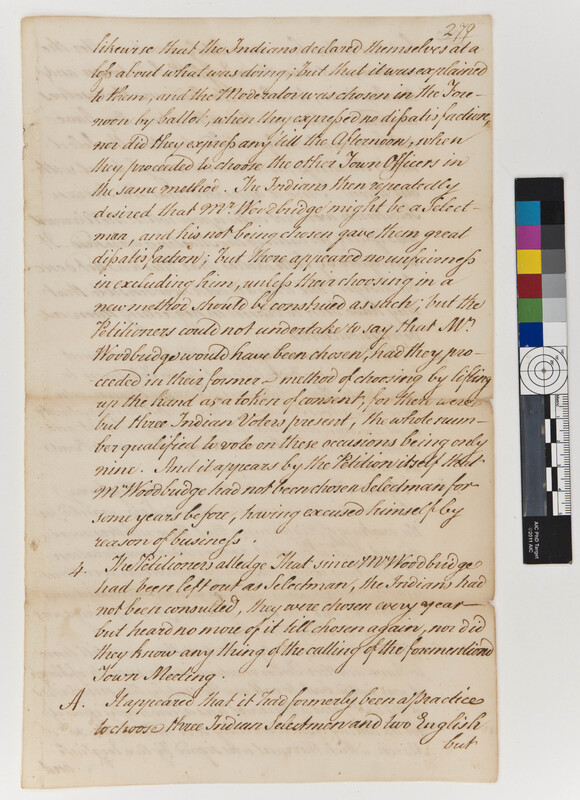 279
likewise that the Indians declared themselves at a
loss about what was doing; but that it was explained
to them, and the Moderator was chosen in the Fore-
noon by ballot, when they expressed no dissatisfaction,
nor did they express any till the Afternoon, when
they proceeded to choose the other Town Officers in
the same method. The Indians then repeatedly
desired that Mr. Woodbridge might be a Select-
man, and his not being chosen gave them great
dissatisfaction; but there appeared no unfairness
in excluding him, unless their choosing in a
new method should be construed as such; but the
Petitioners could not undertake to say that Mr.
Woodbridge would have been chosen, had they pro-
ceeded in their former method of choosing by lifting
up the hand as a token of consent, for there were
but three Indian Voters present, the whole num-
ber qualified to vote on these occasions being only
nine. And it appears by the Petition itself that
Mr Woodbridge had not been chosen Selectman for
some years before, having excused himself by
reason of business.
4. The Petitioners alledge That since Mr Woodbridge
had been left out as Selectman, the Indians had
not been consulted, they were chosen every year
but heard no more of it till chosen again, nor did
they know any thing of the calling of the forementiond
Town Meeting.
A. It appeared that it had formerly been a practice
to choose three Indian Selectmen and two English
but
AIC PhD Target
©2011 AIC